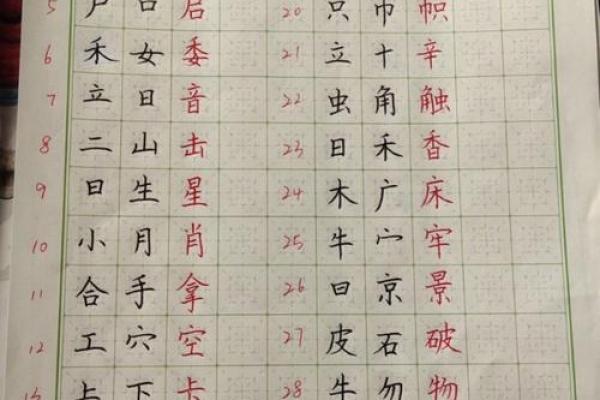 5 户 口 启 20 只 巾 帜
6 禾 女 委 21 立 十 辛
7 立 日 音 22 虫 角 触
8 二 山 击 23 日 禾 香
9 日 生 星 24 木 广 床
10 小 月 肖 25 牛 宀 牢
11 合 手 拿 26 日 京 景
12 工 穴 空 27 皮 石 破
13 上 下 卡 28 牛 勿 物